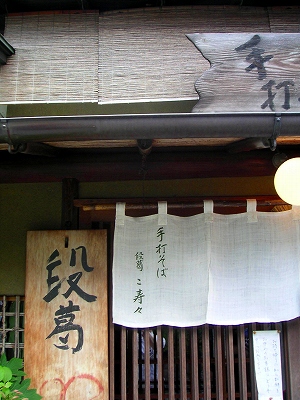 手打
手打そば
段葛 こ寿々
段葛